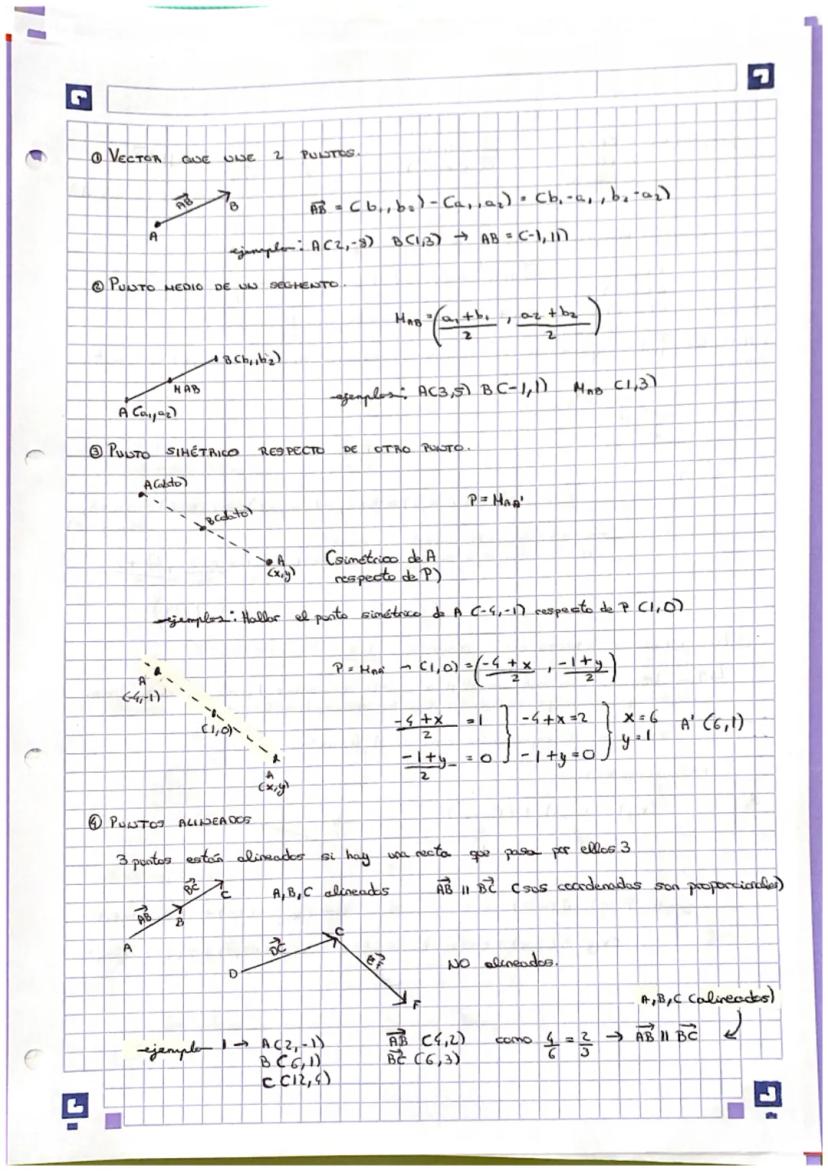 ① VECTOR QUE UNE 2 PUNTOS.
AB
A
B
AB = (b₁, b₂) - (a₁, a₂) = (b₁ - a₁, b₂ - a₂)
ejemplo: A(2,-8) B(1,3) → AB = (-1, 11)
② PUNTO MEDIO DE UN SEGMENTO.
M_AB = (a₁ + b₁ / 2 , a₂ + b₂ / 2)
B(b₁, b₂)
MAB
A(a₁, a₂)
ejemplos: A(3,5) B(-1,1) M_AB (1,3)
③ PUNTO SIMÉTRICO RESPECTO DE OTRO PUNTO.
A(dato)
P = M_AA'
B(dato)
A (x,y)
(simétrico de A
respecto de P)
ejemplos: Hallar el punto simétrico de A (-4,-1) respecto de P (1,0)
P = M_AA' → (1,0) = (-4 + x / 2 , -1 + y / 2)
A
(-4,-1)
(1,0)
A
(x,y)
-4+x / 2 = 1 } -4+x=2 } x=6 A' (6,1)
-1+y / 2 = 0 } -1+y=0 } y=1
④ PUNTOS ALINEADOS
3 puntos están alineados si hay una recta que pasa por ellos 3
AB BC
A B C
A, B, C alineados AB || BC (sus coordenadas son proporcionales)
DC
D C F
NO alineados.
A, B, C (alineados)
ejemplo 1 → A(2,-1) AB (4,2) como 4/6 = 2/3 → AB || BC
B(6,1) BC (6,3)
C(12,4)